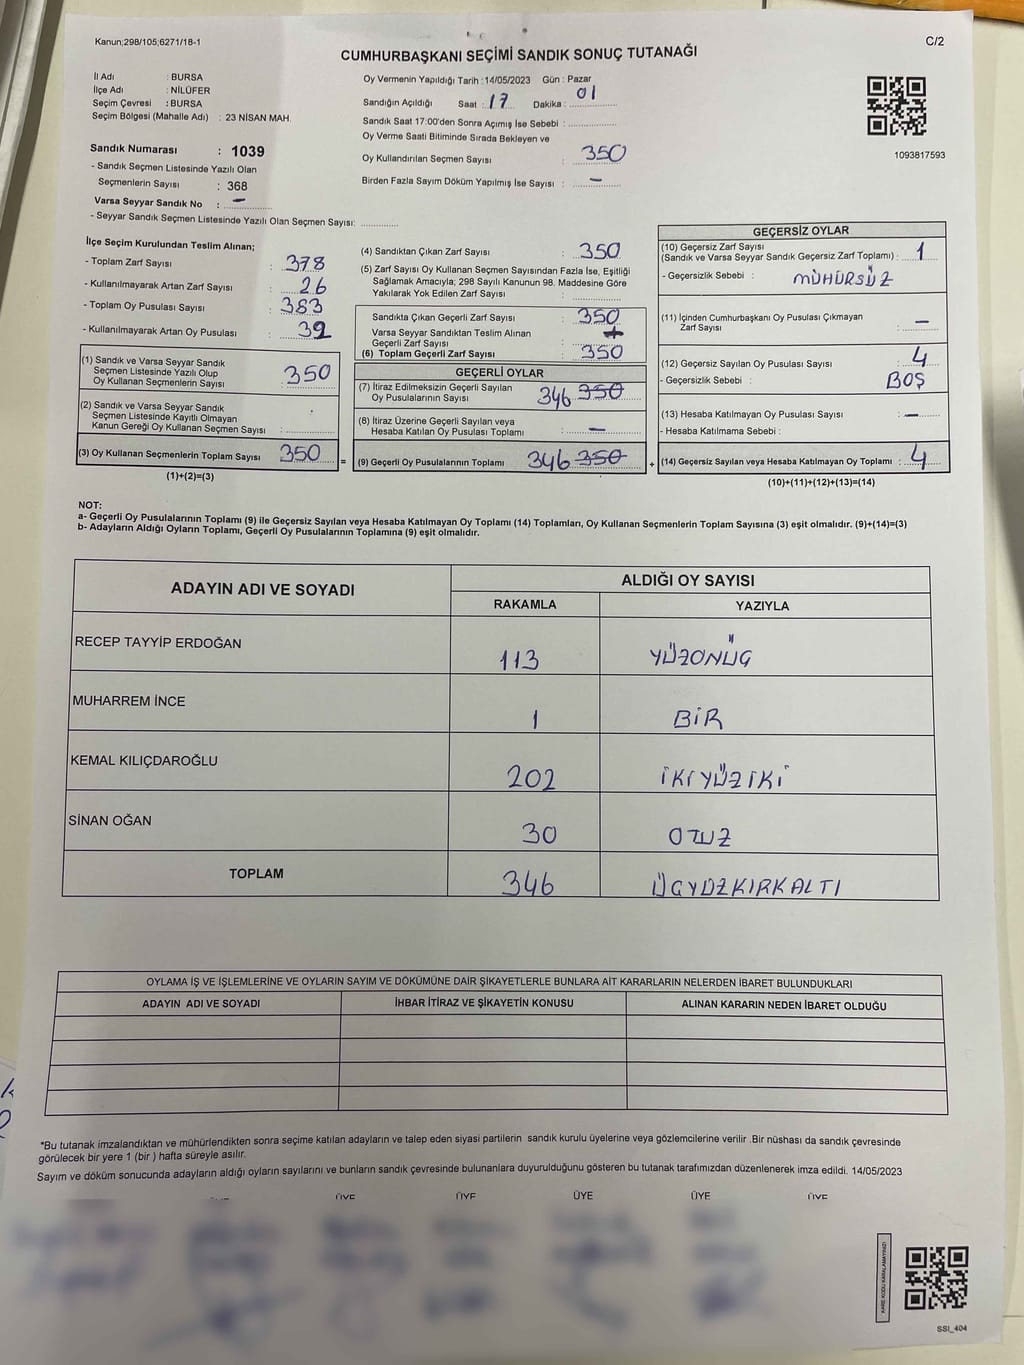 Kanun;298/105;6271/18-1
C/2
CUMHURBAŞKANI SEÇİMİ SANDIK SONUÇ TUTANAĞI
İl Adı : BURSA
İlçe Adı : NİLÜFER
Seçim Çevresi : BURSA
Seçim Bölgesi (Mahalle Adı) : 23 NİSAN MAH.
Sandık Numarası : 1039
- Sandık Seçmen Listesinde Yazılı Olan
Seçmenlerin Sayısı : 368
Varsa Seyyar Sandık No : —
- Seyyar Sandık Seçmen Listesinde Yazılı Olan Seçmen Sayısı: ............
Oy Vermenin Yapıldığı Tarih :14/05/2023 Gün : Pazar
Sandığın Açıldığı Saat : 17 Dakika : 01
Sandık Saat 17:00'den Sonra Açımış İse Sebebi : ...............
Oy Verme Saati Bitiminde Sırada Bekleyen ve
Oy Kullandırılan Seçmen Sayısı : 350
Birden Fazla Sayım Döküm Yapılmış İse Sayısı : —
1093817593
İlçe Seçim Kurulundan Teslim Alınan;
- Toplam Zarf Sayısı : 378
- Kullanılmayarak Artan Zarf Sayısı : 26
- Toplam Oy Pusulası Sayısı : 383
- Kullanılmayarak Artan Oy Pusulası : 32
(1) Sandık ve Varsa Seyyar Sandık
Seçmen Listesinde Yazılı Olup
Oy Kullanan Seçmenlerin Sayısı : 350
(2) Sandık ve Varsa Seyyar Sandık
Seçmen Listesinde Kayıtlı Olmayan
Kanun Gereği Oy Kullanan Seçmen Sayısı : ............
(3) Oy Kullanan Seçmenlerin Toplam Sayısı 350
(1)+(2)=(3)
(4) Sandıktan Çıkan Zarf Sayısı : 350
(5) Zarf Sayısı Oy Kullanan Seçmen Sayısından Fazla İse, Eşitliği
Sağlamak Amacıyla; 298 Sayılı Kanunun 98. Maddesine Göre
Yakılarak Yok Edilen Zarf Sayısı : ............
Sandıkta Çıkan Geçerli Zarf Sayısı : 350
Varsa Seyyar Sandıktan Teslim Alınan +
Geçerli Zarf Sayısı :
(6) Toplam Geçerli Zarf Sayısı : 350
GEÇERLİ OYLAR
(7) İtiraz Edilmeksizin Geçerli Sayılan
Oy Pusulalarının Sayısı : 346 350
(8) İtiraz Üzerine Geçerli Sayılan veya
Hesaba Katılan Oy Pusulası Toplamı : —
= (9) Geçerli Oy Pusulalarının Toplamı 346 350
GEÇERSİZ OYLAR
(10) Geçersiz Zarf Sayısı
(Sandık ve Varsa Seyyar Sandık Geçersiz Zarf Toplamı) : 1
- Geçersizlik Sebebi : MÜHÜRSÜZ
(11) İçinden Cumhurbaşkanı Oy Pusulası Çıkmayan
Zarf Sayısı : —
(12) Geçersiz Sayılan Oy Pusulası Sayısı : 4
- Geçersizlik Sebebi : BOŞ
(13) Hesaba Katılmayan Oy Pusulası Sayısı : —
- Hesaba Katılmama Sebebi :
+ (14) Geçersiz Sayılan veya Hesaba Katılmayan Oy Toplamı : 4
(10)+(11)+(12)+(13)=(14)
NOT:
a- Geçerli Oy Pusulalarının Toplamı (9) ile Geçersiz Sayılan veya Hesaba Katılmayan Oy Toplamı (14) Toplamları, Oy Kullanan Seçmenlerin Toplam Sayısına (3) eşit olmalıdır. (9)+(14)=(3)
b- Adayların Aldığı Oyların Toplamı, Geçerli Oy Pusulalarının Toplamına (9) eşit olmalıdır.
ADAYIN ADI VE SOYADI
ALDIĞI OY SAYISI
RAKAMLA YAZIYLA
RECEP TAYYİP ERDOĞAN 113 YÜZONÜÇ
MUHARREM İNCE 1 BİR
KEMAL KILIÇDAROĞLU 202 İKİYÜZİKİ
SİNAN OĞAN 30 OTUZ
TOPLAM 346 ÜÇYÜZKIRKALTI
OYLAMA İŞ VE İŞLEMLERİNE VE OYLARIN SAYIM VE DÖKÜMÜNE DAİR ŞİKAYETLERLE BUNLARA AİT KARARLARIN NELERDEN İBARET BULUNDUKLARI
ADAYIN ADI VE SOYADI İHBAR İTİRAZ VE ŞİKAYETİN KONUSU ALINAN KARARIN NEDEN İBARET OLDUĞU
*Bu tutanak imzalandıktan ve mühürlendikten sonra seçime katılan adayların ve talep eden siyasi partilerin sandık kurulu üyelerine veya gözlemcilerine verilir .Bir nüshası da sandık çevresinde
görülecek bir yere 1 (bir ) hafta süreyle asılır.
Sayım ve döküm sonucunda adayların aldığı oyların sayılarını ve bunların sandık çevresinde bulunanlara duyurulduğunu gösteren bu tutanak tarafımızdan düzenlenerek imza edildi. 14/05/2023
ÜYE ÜYE ÜYE ÜYE ÜYE
KARE KODU KARALAMAYINIZ!
SSI_404